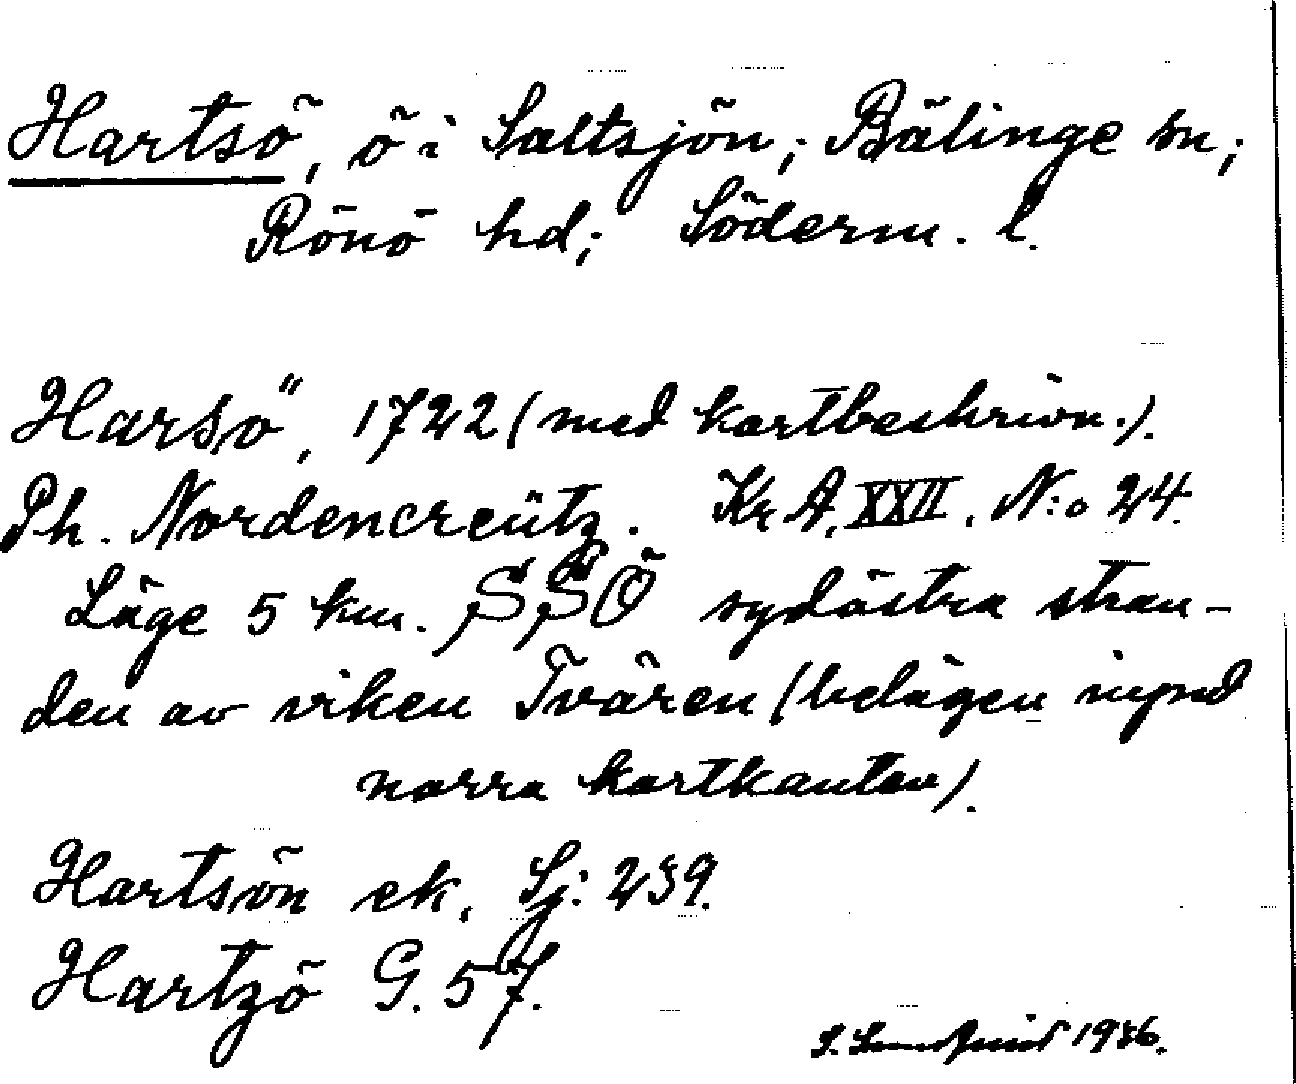 Hartsö, ö i Saltsjön; Bälinge sn;
Rönö hd; Söderm. l.
Harsö, 1722 (med kartbeskrivn.).
Ph. Nordencreütz. Kr. A. XXII. N:o 24.
Läge 5 km. SSÖ sydöstra stran-
den av viken Tvären (belägen invid
norra kartkanten).
Hartsön ek. Sj: 239.
Hartzö G. 57.
1936.